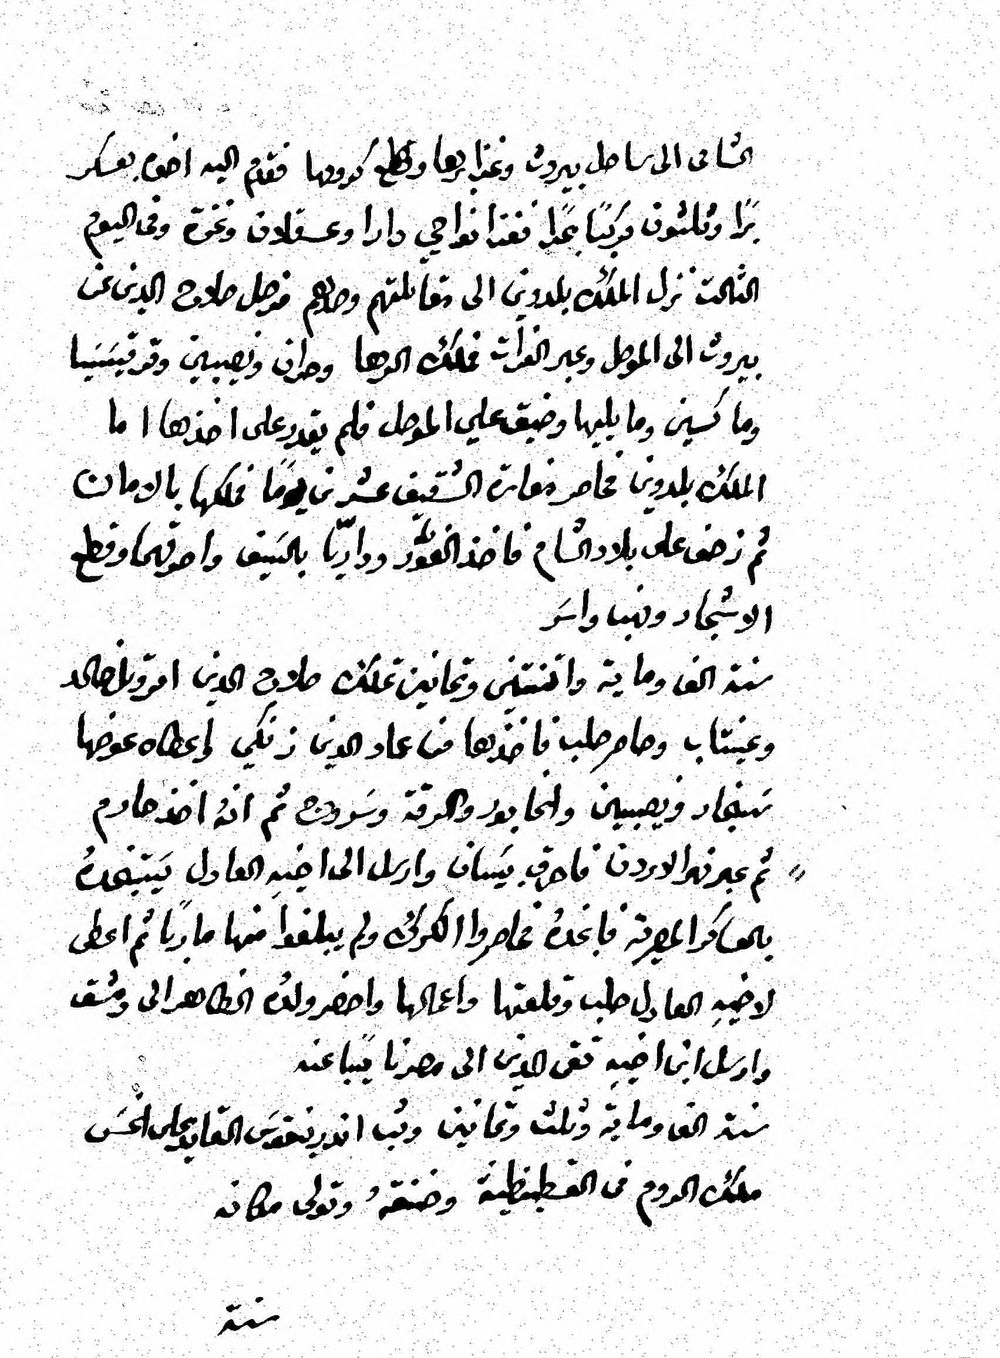 الشامى الى ساحل بيروت وغزا برها وقطع كرومها فقدم اليه اخوه بعسكر
برًا وثلثون مركبًا بحرًا فغزا نواحي دارا وعسقلان وغزة وفى اليوم
الثالث نزل الملك بلدوين الى مقابلتهم وصدهم فرحل صلاح الدين عن
بيروت الى الموصل وعبر الفرات فملك الرها وحران ونصيبين وقرقيسَيا
وماكسين وما يليها وضيق علي الموصل فلم يقدر على اخذها اما
الملك بلدوين فحاصر مغارة الشقيف عشرين يومًا فملكها بالامان
ثم زحف على بلاد الشام فاخذ الغوّر وداريّا بالسَيف واحرقهما وقطع
الاشجار ونهب واسَر
سنة الف وماية واثنتين وثمانين تملك صلاح الدين امد وتل خالد
وعينتاب وحاصر حلب فاخذها من عماد الدين زنكي واعطاه عوضها
سَنجار ونصيبين والخابور والرقة وسَروج ثم انهُ اخذ حارم
ثم عبر نهر الاردن فاحرق بيَسان وارسل الى اخيهِ العادل يَستنجدهُ
بالعساكر المصرية فانجدهُ فحاصروا الكرك ولم يبلغوا منها ماربًا ثم اعطى
لاخيهِ العادل حلب وقلعتها واعمالها واحضر ولدهُ الظاهر الى دمشق
وارسل ابن اخيهِ تقى الدين الى مصر نايبًا عنه
سنة الف وماية وثلث وثمانين وثب اندرينقوسَ القايد على الكسَ
ملك الروم فى القسطنطينية وخنقهُ وتولى مكانه
سنة